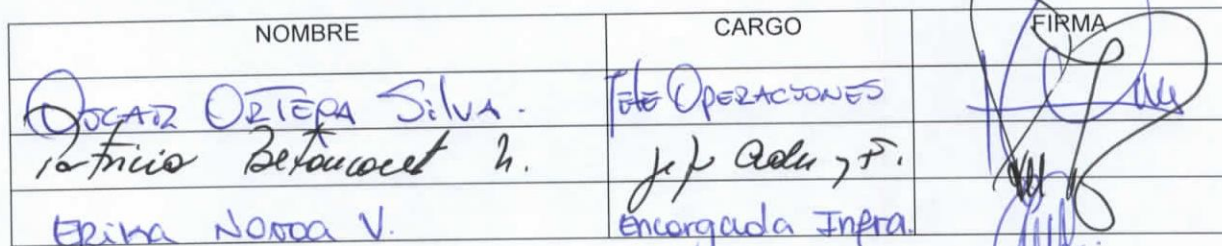 NOMBRE CARGO FIRMA
OSCAR ORTEGA SILVA. Jefe OPERACIONES
Patricio Betancourt h. Jefe
ERIKA V. Encargada Infra.